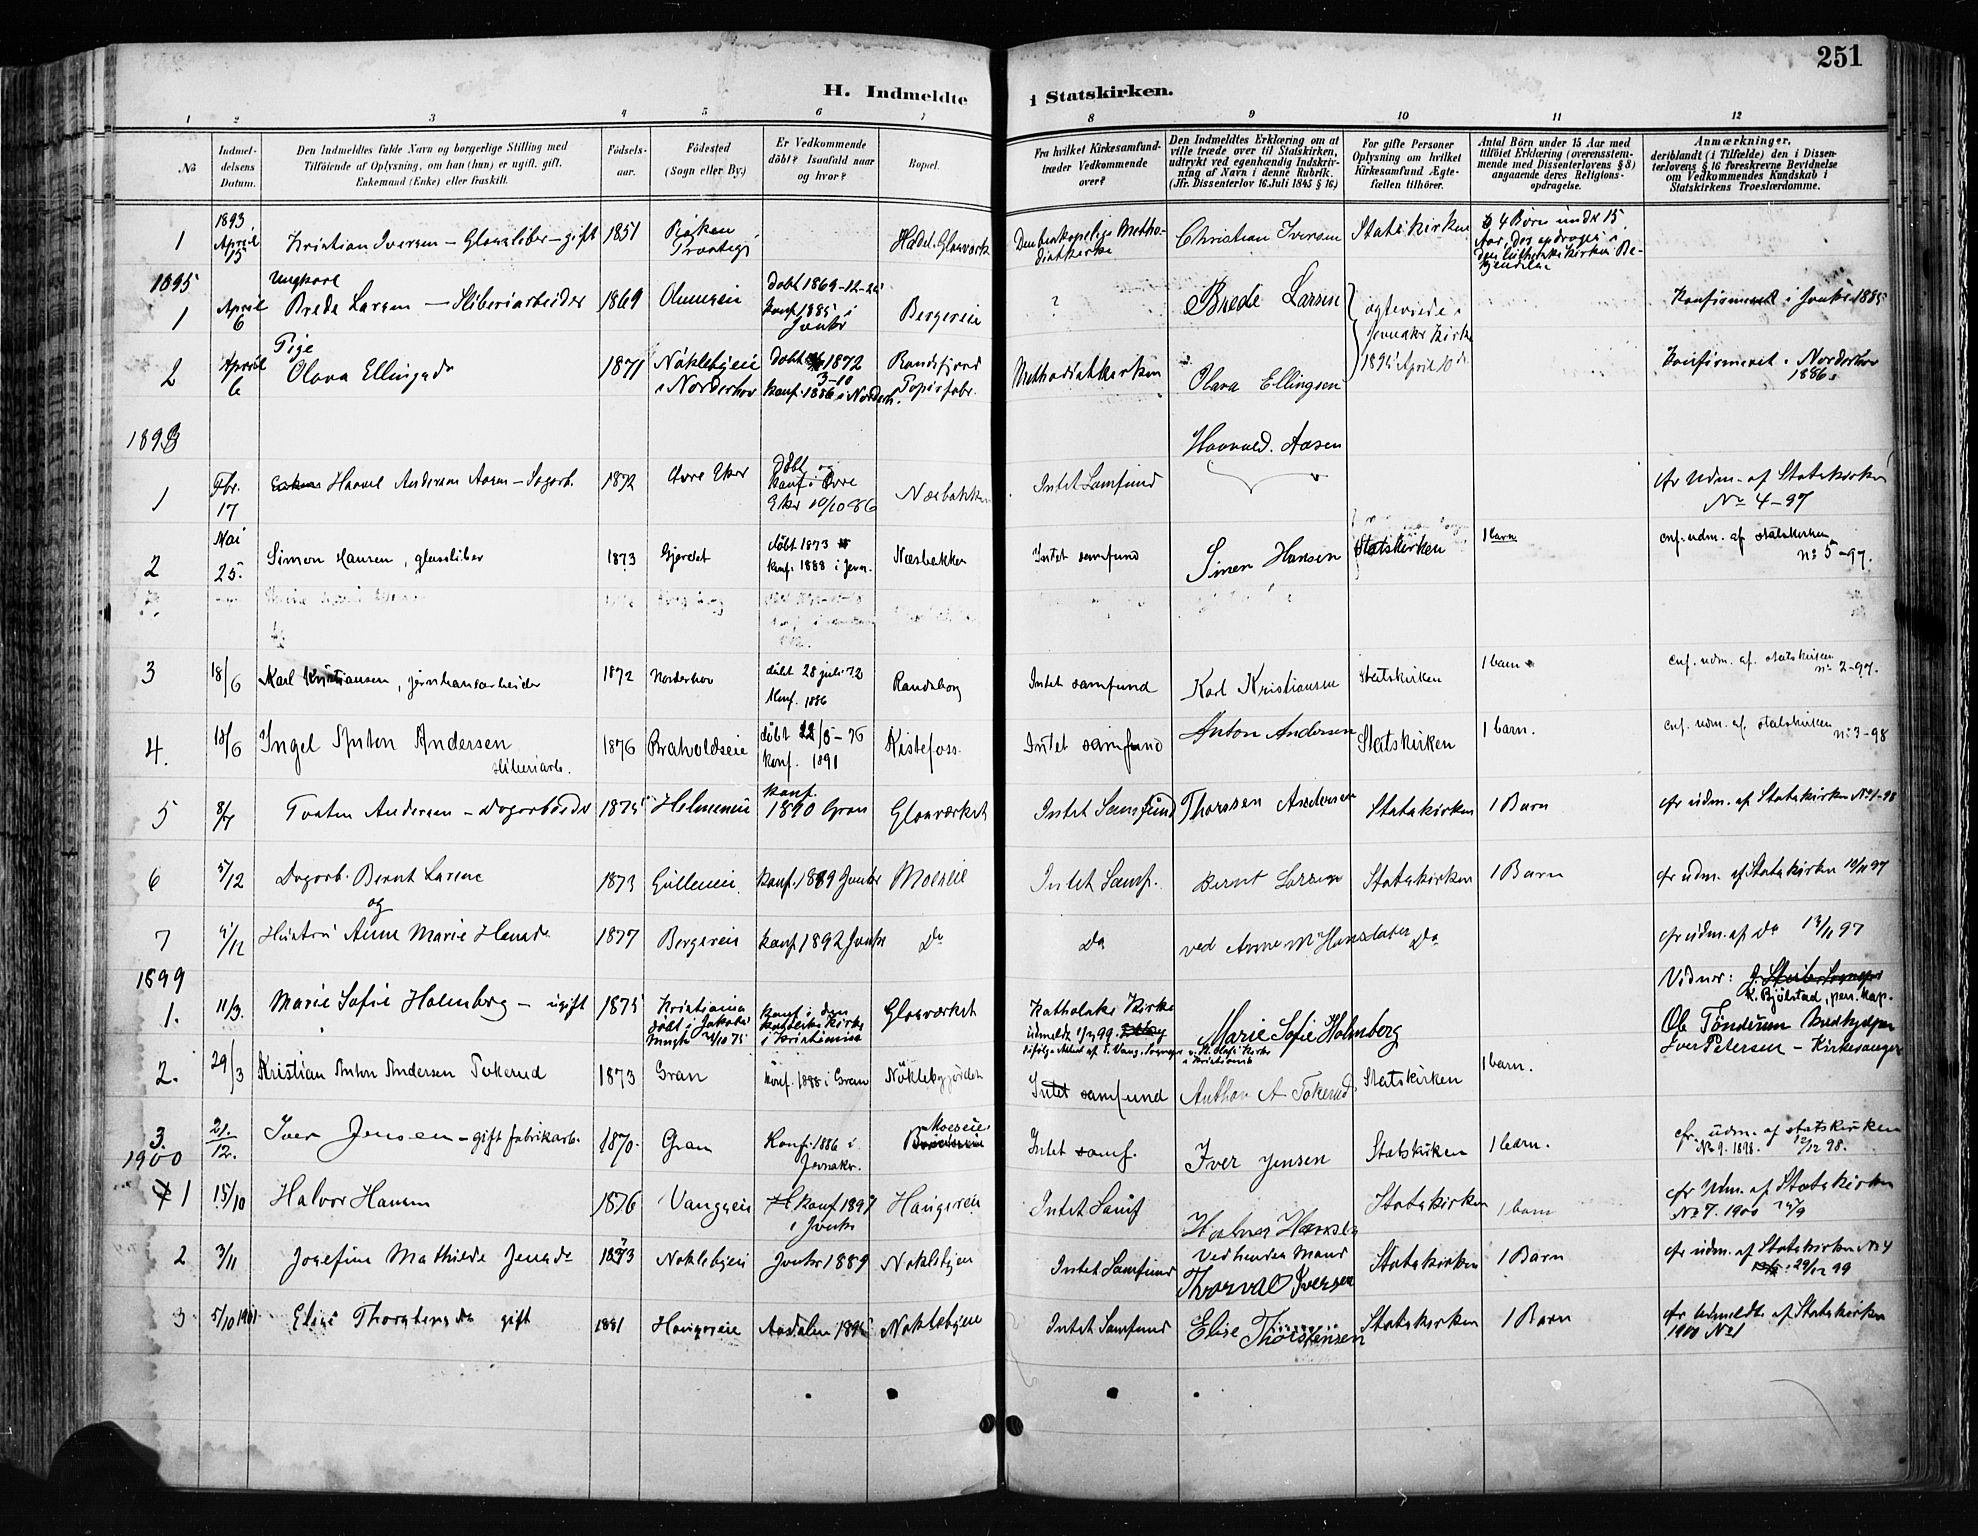 251
H. Indmeldte i Statskirken.
1 2 3 4 5 6 7 8 9 10 11 12
No
Indmel-
delsens
Datum.
Den Indmeldtes fulde Navn og borgerlige Stilling med
Tilföiende af Oplysning, om han (hun) er ugift, gift,
Enkemand (Enke) eller fraskilt.
Födsels-
aar.
Födested
(Sogn eller By.)
Er Vedkommende
döbt? Isaafald naar
og hvor?
Bopæl.
Fra hvilket Kirkesamfund
træder Vedkommende
over?
Den Indmeldtes Erklæring om at
ville træde over til Statskirken,
udtrykt ved egenhændig Indskriv-
ning af Navn i denne Rubrik.
(Jfr. Dissenterlov 16 Juli 1845 § 16.)
For gifte Personer
Oplysning om hvilket
Kirkesamfund Ægte-
fællen tilhörer.
Antal Börn under 15 Aar med
tilföiet Erklæring (overensstem-
mende med Dissenterlovens § 8)
angaaende deres Religions-
opdragelse.
Anmærkninger,
deriblandt (i Tilfælde) den i Dissen-
terlovens § 16 foreskrevne Bevidnelse
om Vedkommendes Kundskab i
Statskirkens Troeslærdomme.
1893
1 April 15 Kristian Iversen – Glassliber – gift 1851 Røken Hadel. Glasværk Den biskopelige Metho-
distkirke Christian Iversen Statskirken 4 Børn under 15
Aar, der opdroges i
den lutherske Kirkes Be-
kjendelse
1895
1 April 6 Ungkarl
Brede Larsen – Sliberiarbeider 1869 Olumseie Døbt 1869-12-26
konf. 1885 i
Jevnkr Bergereie ? Brede Larsen ægteviede i
Jevnaker Kirke
1895 April 10de Konfirmeret i Jevnkr 1885
2 April 6 Pige
Olava Ellingsdr 1871 Nøklebyeie
i Norderhov Døbt 1872
3-10
konf. 1886 i Norderh. Randsfjord
Papirfabr. Methodistkirken Olava Ellingsen Konfirmeret i Norderhov
1886
1898
1 Fbr. 17 Havel Andersen Aasen – Sagarb. 1872 Øvre Eker Døbt og
konf. i Øvre
Eker 10/10 86 Næsbakken Intet Samfund Haavald. Aasen cfr Udm. af Statskirken
No 4-97
2 Mai 25. Simon Hansen, glassliber 1873 Gjerdet døbt 1873
konf. 1888 i Jevn. Næsbakken Intet samfund Simen Hansen Statskirken 1 barn cnf. udm. af statskirken
no 5-97.
3 18/6 Karl Kristiansen, jernbanearbeider 1872 Norderhov døbt 28 juli 72
Konf. 1886 Randsborg Intet samfund Karl Kristiansen Statskirken 1 barn cnf. udm. af. statskirken
no 2-97.
4. 18/6 Ingel Anton Andersen
sliberiarb. 1876 Braholdseie døbt 22/5-76
konf. 1891 Kistefoss Intet samfund Anton Andersen Statskirken 1 barn. cnf. udm. af. statskirken
no 3-98
5 8/7 Torsten Andersen – Dagarbeider 1875 Helmeneie konf.
1890 Gran Glasværket Intet Samfund Thorssen Andersen Statskirken 1 Barn cfr udm. af Statskirken No 1-98
6 5/12 Dagarb. Bernt Larsen
og 1873 Gulleneie konf. 1889 Jevnkr Moeseie Intet Samf. Bernt Larsen Statskirken 1 Barn cfr udm. af Statskirken 10/11 97
7 5/12 Hustru Anne Marie Hansdr 1877 Bergereie konf. 1892 Jevnkr Do Do ved Anne M Hansdater Do cfr udm. af Do 13/11 97
1899
1. 11/3. Marie Sofie Holmberg – ugift 1875 Kristiania
født i Jakobs
Menigh 21/10 75 konf i den
katholske Kirke
i Kristiania Glasværket Katholske Kirke
udmeldt 1/3 99
ifølge Attest af T. Vang, Sogneprs v. St. Olafs Kirke
i Kristiania Marie Sofie Holmberg Vidner:
K. Bjølstad, pers. kap.
Ole Tönderum Medhjelper
Iver Petersen – Kirkesanger
2. 29/3 Kristian Anton Andersen Tokerud 1873 Gran Konf. 1888 i Gran Nöklebygjördet Intet samfund Anthon A Tokerud. Statskirken 1 barn.
3. 21./12. Iver Jensen – gift fabrikarb. 1870. Gran Konf. 1886 i
Jevnaker. Moeseie Intet samf. Iver Jensen Statskirken 1 barn. cfr. udm. af statskirken
No 9. 1898. 12/12 98.
1900
1 15/10 Halvor Hansen 1876 Vangseie konf 1897
i Jevnkr Haugseie Intet Samf Halvor Hansen Statskirken 1 barn cfr Udm. af Statskirken
No 7. 1900 24/9
2 3/11 Josefine Mathilde Jensdr 1873 Noklebyeie Jevnkr 1889 Noklebyeie Intet Samfund Ved hendes Mand
Thorval Iversen Statskirken 1 Barn cfr udm. af Statskirken No 4
29/12 99
3 5/10 1901 Elise Thorstensdr gift 1881 Haugseie Aadalen 1895 Noklebyeie Intet Samfund Elise Thorstensen Statskirken 1 Barn cfr Udmeldte af Statskirken
1900 No 1